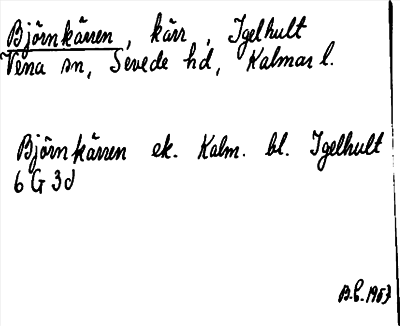 Björnkärren, kärr, Igelhult
Vena sn, Sevede hd, Kalmar l.
Björnkärren ek. Kalm. bl. Igelhult
6 G 3d